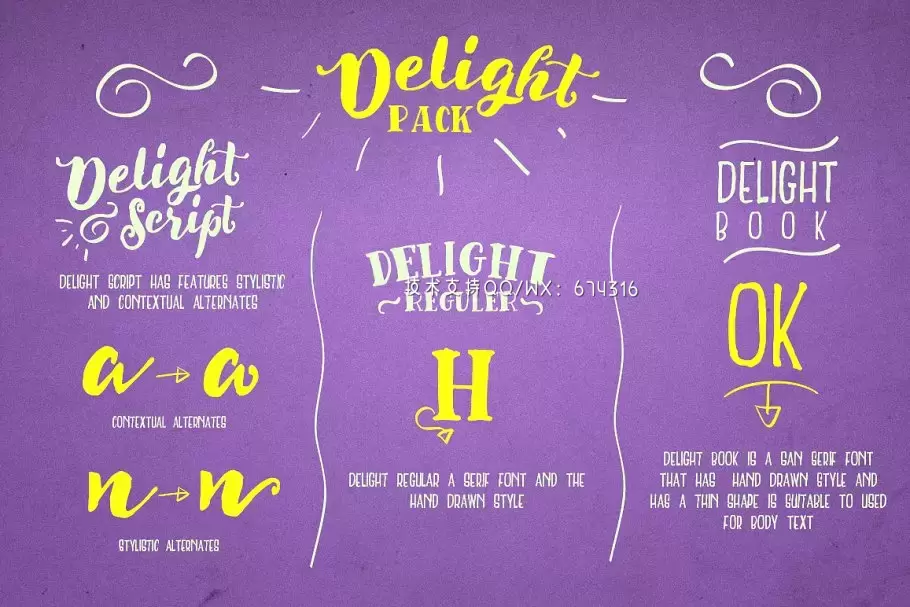 Delight
PACK
Delight
& Script
DELIGHT SCRIPT HAS FEATURES STYLISTIC
AND CONTEXTUAL ALTERNATES
a → a
CONTEXTUAL ALTERNATES
n → n
STYLISTIC ALTERNATES
DELIGHT
REGULER
技术支持QQ/WX: 674316
H
DELIGHT REGULAR A SERIF FONT AND THE
HAND DRAWN STYLE
DELIGHT
BOOK
OK
DELIGHT BOOK IS A SAN SERIF FONT
THAT HAS HAND DRAWN STYLE AND
HAS A THIN SHAPE IS SUITABLE TO USED
FOR BODY TEXT